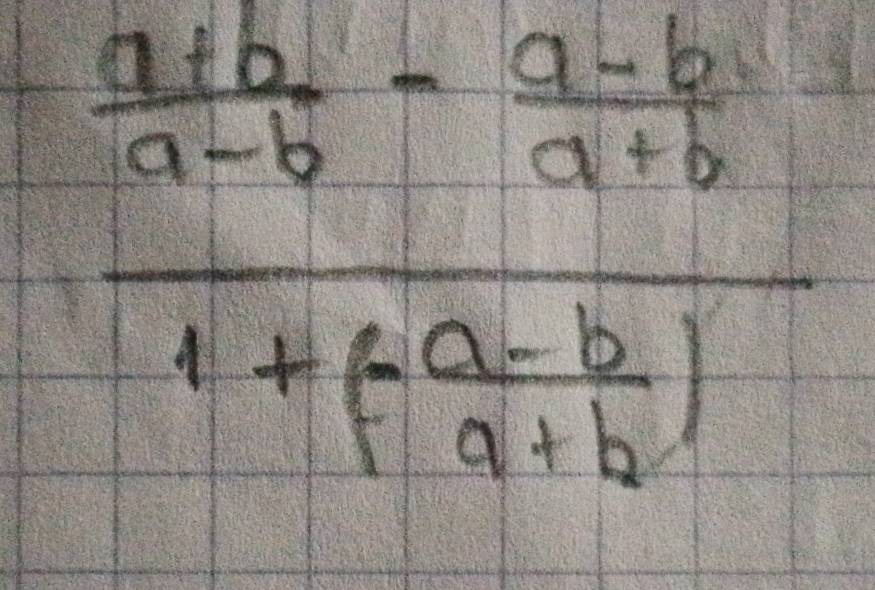 a+b - a-b
a-b a+b
1 + (- a-b )
a+b